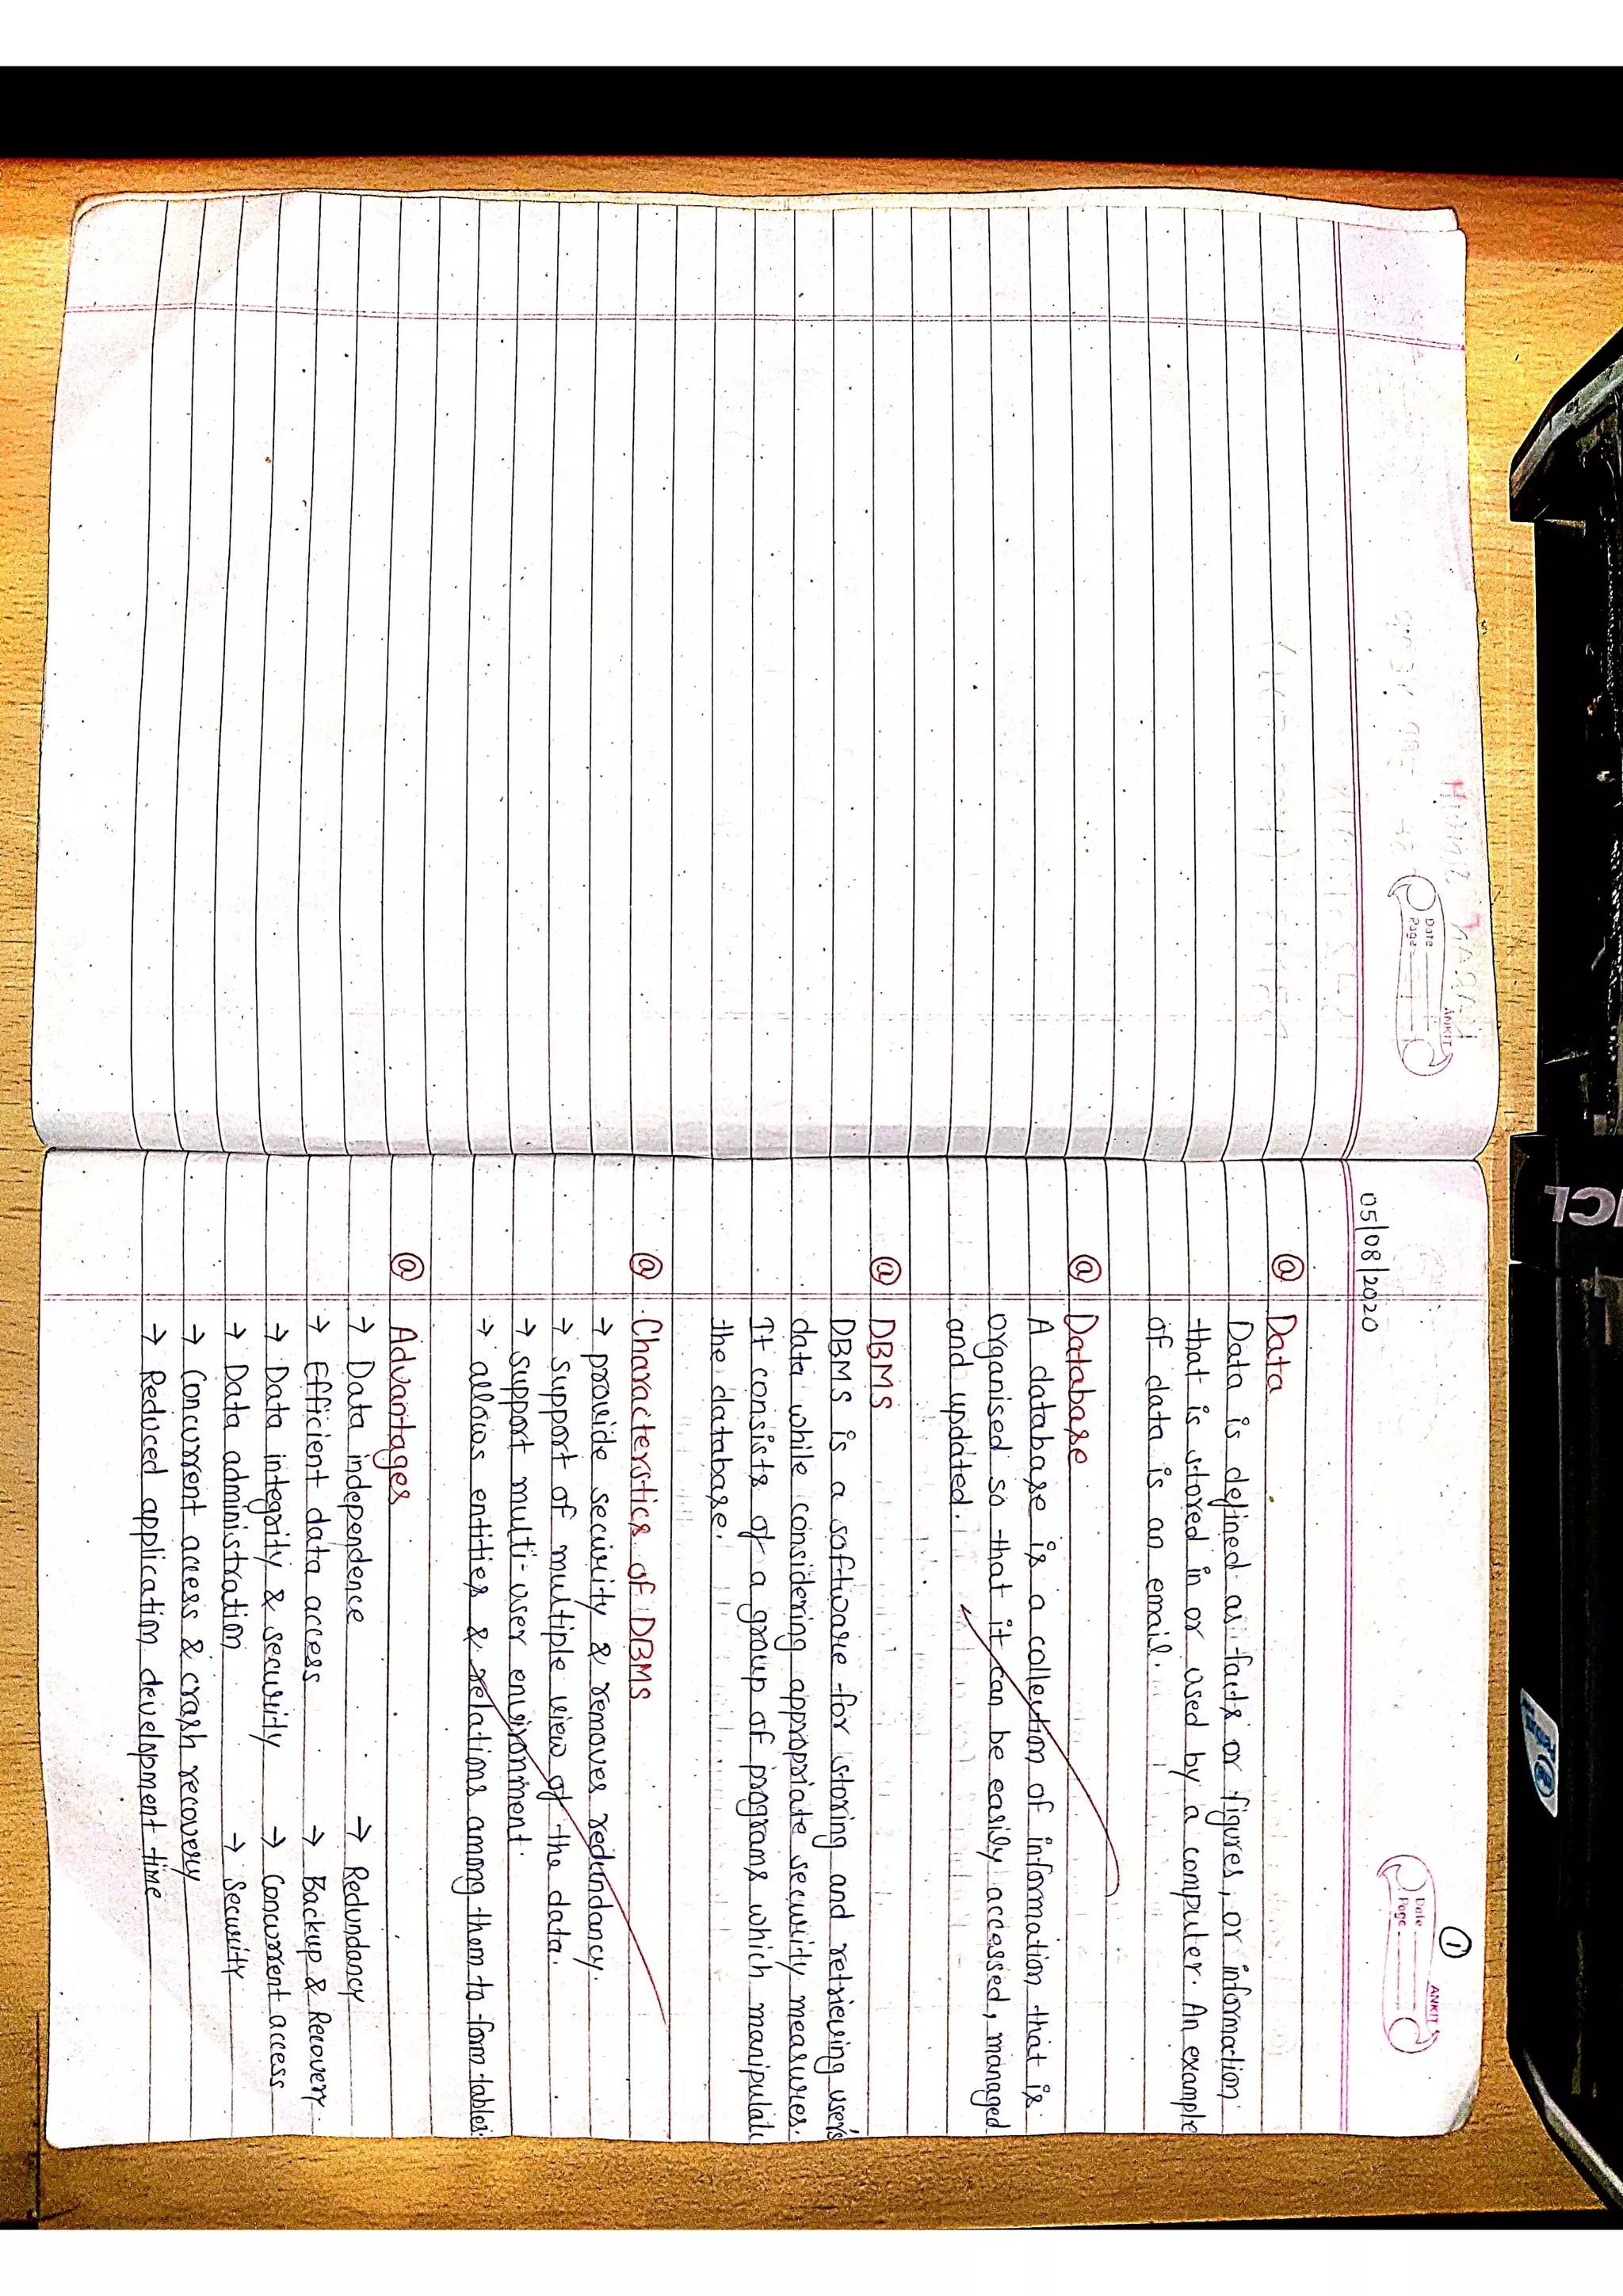 Date
Page
ANKIT
05/08/2020
1
Date
Page
ANKIT
@ Data
Data is defined as facts or figures, or information
that is stored in or used by a computer. An example
of data is an email.
@ Database
A database is a collection of information that is
organised so that it can be easily accessed, managed
and updated.
@ DBMS
DBMS is a software for storing and retrieving user's
data while considering appropriate security measures.
It consists of a group of programs which manipulate
the database.
@ Characterstics of DBMS
→ provide security & removes redundancy.
→ support of multiple view of the data.
→ support multi-user environment.
→ allows entities & relations among them to form tables.
@ Advantages
→ Data independence → Redundancy
→ Efficient data access → Backup & Recovery.
→ Data integrity & security → Concurrent access
→ Data administration → Security
→ Concurrent access & crash recovery
→ Reduced application development time